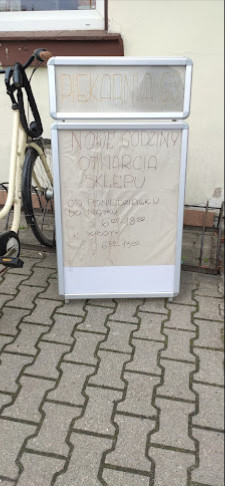 PIEKARNIA
NOWE GODZINY
OTWARCIA
SKLEPU
OD PONIEDZIAŁKU
DO PIĄTKU
6⁰⁰-18⁰⁰
SOBOTY
6⁰⁰-13⁰⁰